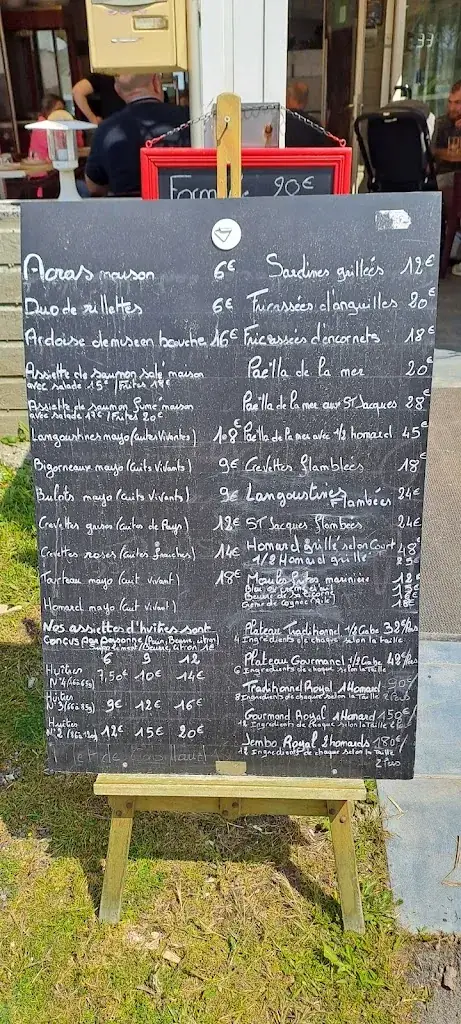 Form 20€
Acras maison 6€
Duo de rillettes 6€
Ardoise de mise en bouche 16€
Assiette de saumon salé maison
avec salade 15€ / Frites 18€
Assiette de saumon fumé maison
avec salade 17€ / Frites 20€
Langoustines mayo (Cuites Vivantes) 10,8€
Bigorneaux mayo (Cuits Vivants) 9€
Bulots mayo (Cuits Vivants) 9€
Crevettes grises (Cuites du Pays) 12€
Crevettes roses (Cuites fraîches) 14€
Tourteau mayo (Cuit vivant) 18€
Homard mayo (Cuit Vivant)
Nos assiettes d'huîtres sont
6 9 12
Huîtres
N°4 7,50€ 10€ 14€
Huîtres
N°3 9€ 12€ 16€
Huîtres
N°2 12€ 15€ 20€
Sardines grillées 12€
Fricassées d'anguilles 20€
Fricassées d'encornets 18€
Paëlla de la mer 20€
Paëlla de la mer aux ST Jacques 28€
Paëlla de la mer avec 1/2 homard 45€
Crevettes flambées 18€
Langoustines Flambées 24€
ST Jacques flambées 24€
Homard grillé selon Court 48€
1/2 Homard grillé 25€
Moules frites marinière 12€
Plateau Traditionnel 1/2 Crabe 39€/pers
4 Ingrédients de chaque selon la taille
Plateau Gourmand 1/2 Crabe 49€/pers
6 Ingrédients de chaque selon la taille
Traditionnel Royal 1 Homard 90€
8 Ingrédients de chaque selon la Taille 2 pers
Gourmand Royal 1 Homard 150€
Ingrédients de chaque selon la taille
Jumbo Royal 2 homards 180€
12 Ingrédients de chaque selon la Taille
2 pers